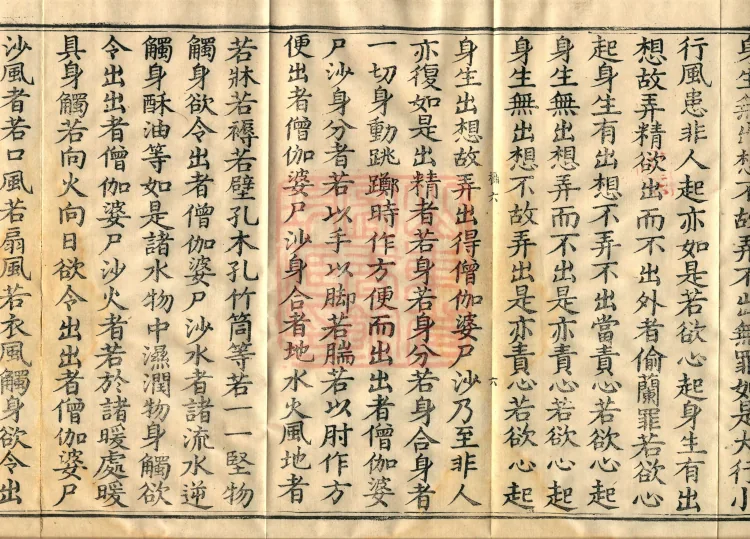 身生無出想不故弄不出無罪如是大行小
行風患非人起亦如是若欲心起身生有出
想故弄精欲出而不出外者偷蘭罪若欲心
起身生有出想不弄不出當責心若欲心起
身生無出想弄而不出是亦責心若欲心起
身生無出想不故弄出是亦責心若欲心起
身生出想故弄出得僧伽婆尸沙乃至非人
亦復如是出精者若身若身分若身合身者
一切身動跳躑時作方便而出出者僧伽婆
尸沙身分者若以手以脚若𨄔若以肘作方
便出者僧伽婆尸沙身合者地水火風地者
若牀若褥若壁孔木孔竹筒等若一一堅物
觸身欲令出者僧伽婆尸沙水者諸流水逆
觸身酥油等如是諸水物中濕潤物身觸欲
令出出者僧伽婆尸沙火者若於諸暖處暖
具身觸若向火向日欲令出出者僧伽婆尸
沙風者若口風若扇風若衣風觸身欲令出